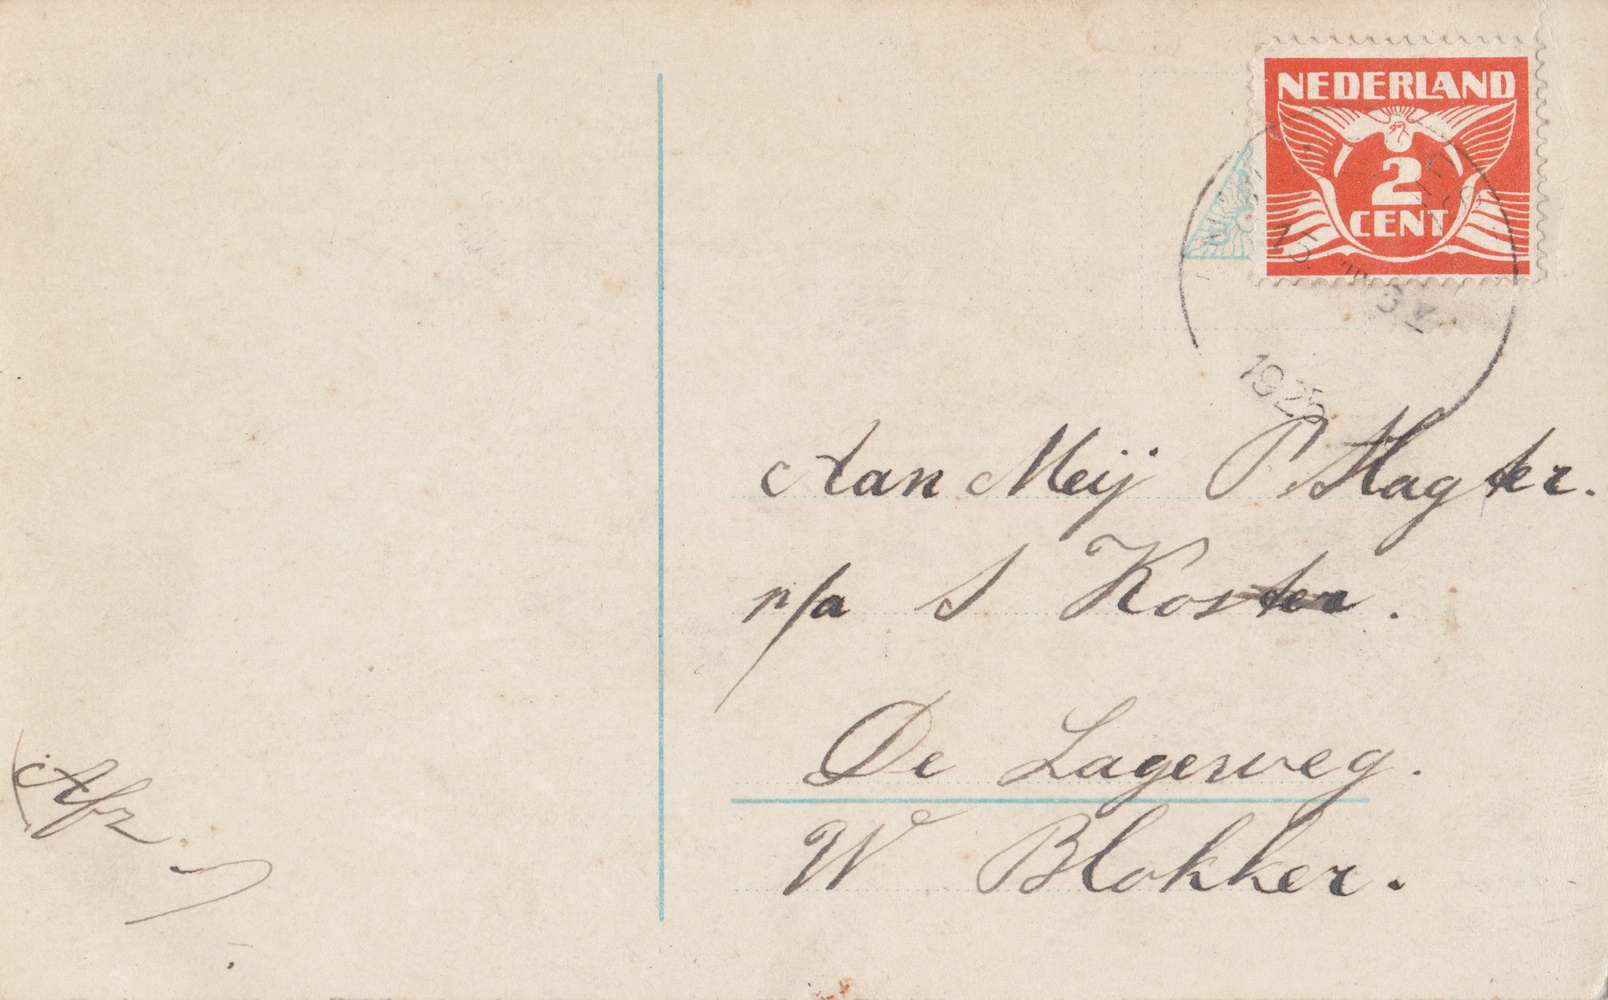 NEDERLAND
2
CENT
1925
Aan Meij P. Slagter.
p/a S Koster.
De Lageweg.
W Blokker.
Afz